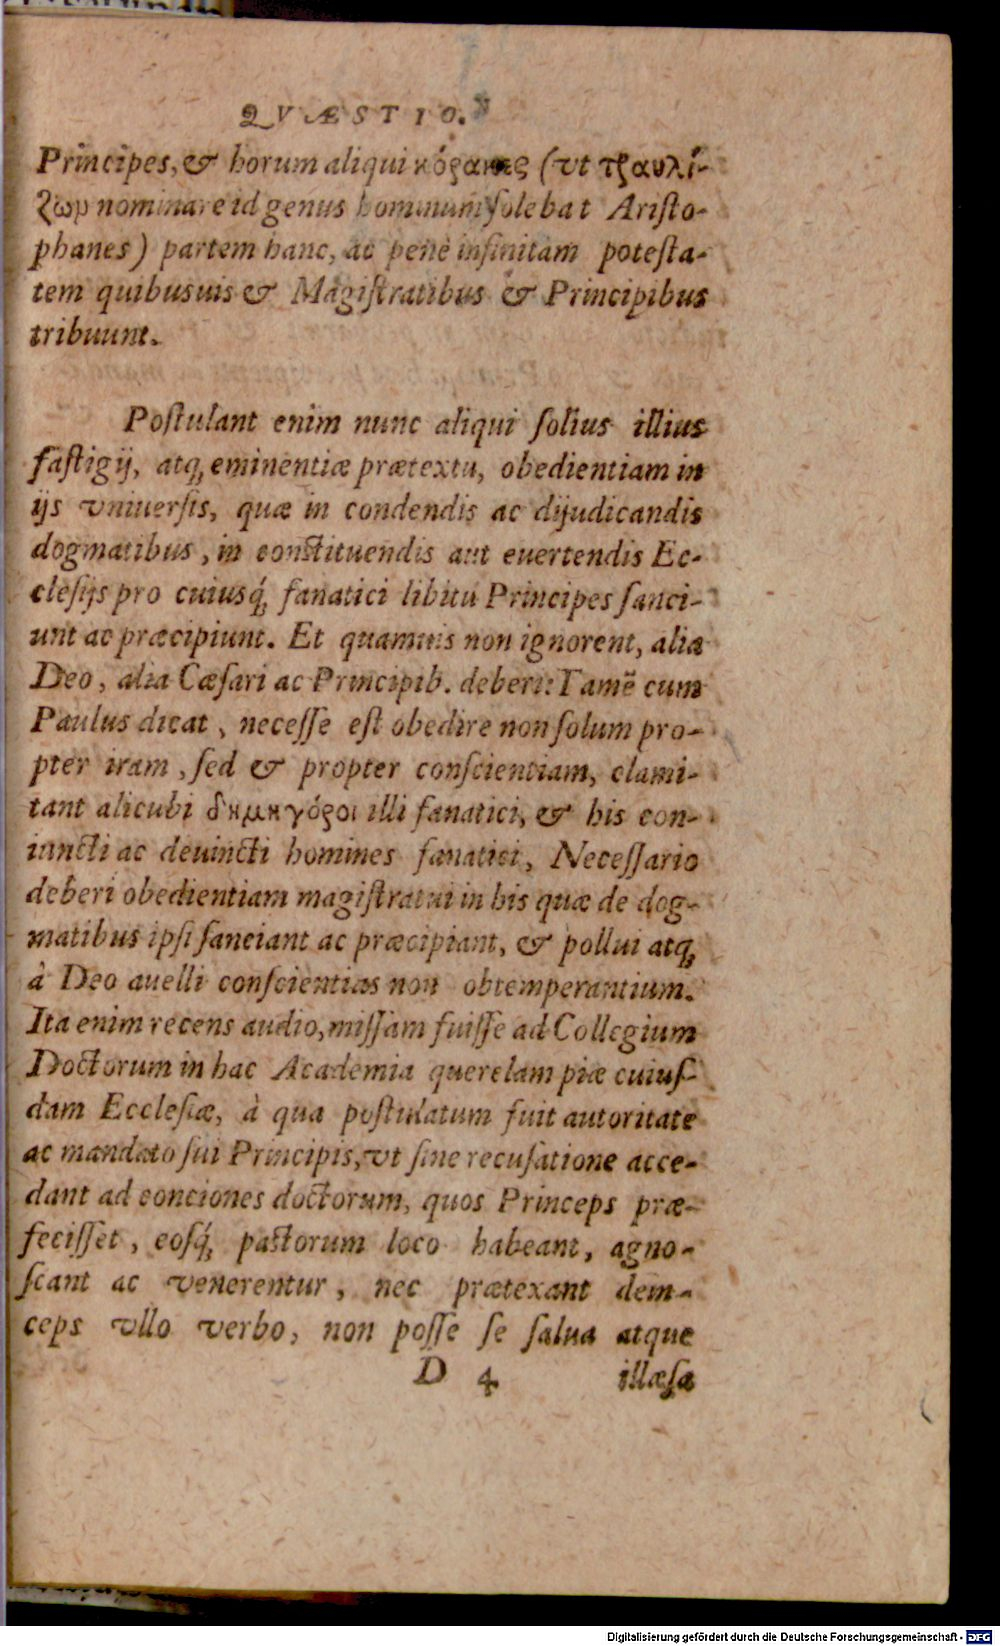 QVÆSTIO.
Principes, & horum aliqui κόρακες (vt τραυλί-
ζων nominare id genus hominum solebat Aristo-
phanes) partem hanc, ac penè infinitam potesta-
tem quibusuis & Magistratibus & Principibus
tribuunt.
Postulant enim nunc aliqui solius illius
fastigij, atq; eminentiæ prætextu, obedientiam in
ijs vniuersis, quæ in condendis ac dijudicandis
dogmatibus, in constituendis aut euertendis Ec-
clesijs pro cuiusq́; fanatici libitu Principes sanci-
unt ac præcipiunt. Et quamuis non ignorent, alia
Deo, alia Cæsari ac Principib. deberi: Tamẽ cum
Paulus dicat, necesse est obedire non solum pro-
pter iram, sed & propter conscientiam, clami-
tant alicubi δημηγόροι illi fanatici, & his con-
iuncti ac deuincti homines fanatici, Necessario
deberi obedientiam magistratui in his quæ de dog-
matibus ipsi sanciant ac præcipiant, & pollui atq;
à Deo auelli conscientias non obtemperantium.
Ita enim recens audio, missam fuisse ad Collegium
Doctorum in hac Academia querelam piæ cuius-
dam Ecclesiæ, à qua postulatum fuit autoritate
ac mandato sui Principis, vt sine recusatione acce-
dant ad conciones doctorum, quos Princeps præ-
fecisset, eosq́; pastorum loco habeant, agno-
scant ac venerentur, nec prætexant dein-
ceps vllo verbo, non posse se salua atque
D 4 illæsa
Digitalisierung gefördert durch die Deutsche Forschungsgemeinschaft - DFG